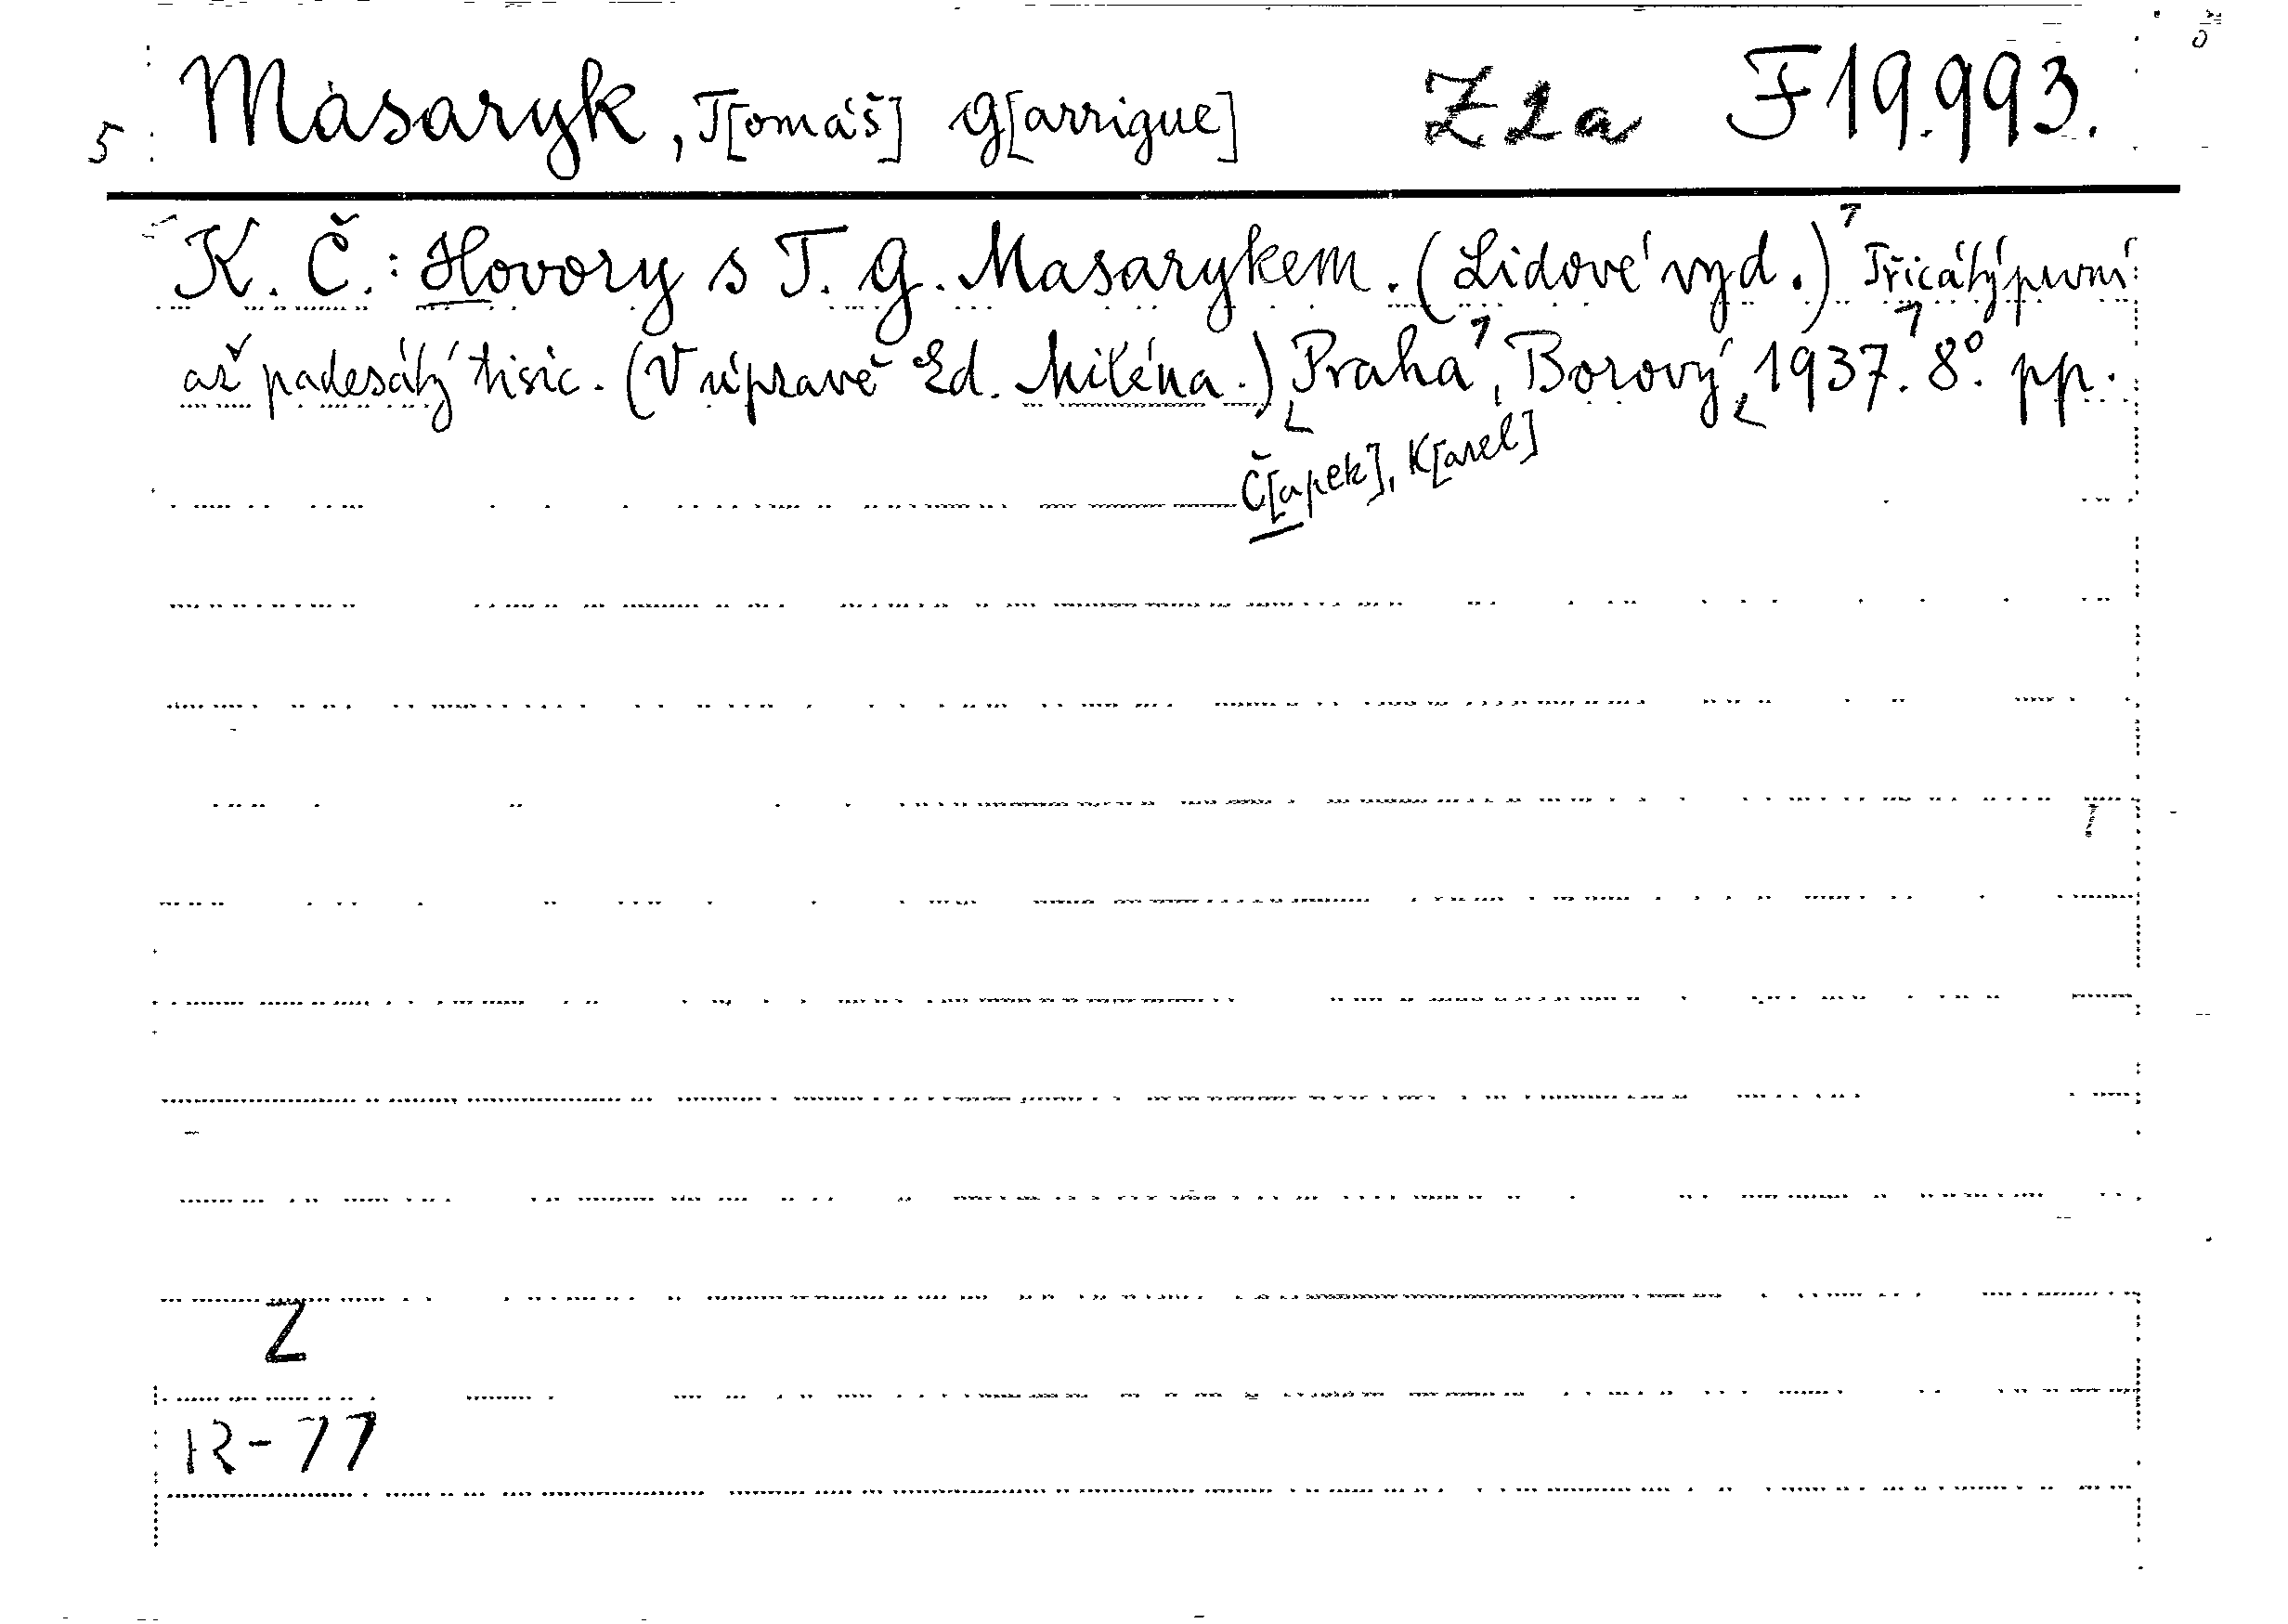 Masaryk, T[omáš] G[arrigue] Z 2a F 19.993.
5
K. Č.: Hovory s T. G. Masarykem. (Lidové vyd.) Třicátýprvní
až padesátý tisíc. (V úpravě Ed. Miléna.) Praha, Borový, 1937. 8°. pp.
Č[apek], K[arel]
Z
R-77